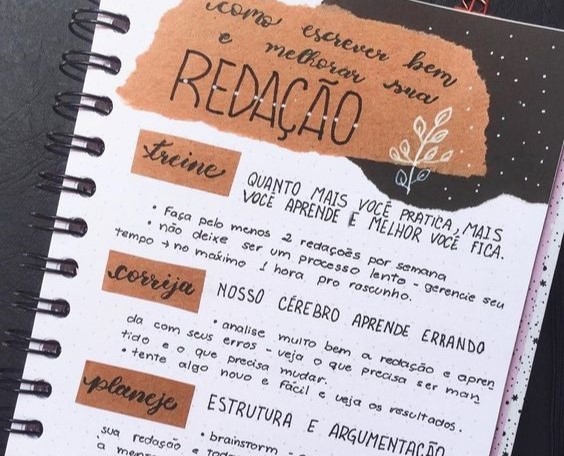 como escrever bem
e melhorar sua
REDAÇÃO
treine
QUANTO MAIS VOCÊ PRATICA, MAIS
VOCÊ APRENDE E MELHOR VOCÊ FICA.
• Faça pelo menos 2 redações por semana
• não deixe ser um processo lento - gerencie seu
tempo → no máximo 1 hora pro rascunho.
corrija
NOSSO CÉREBRO APRENDE ERRANDO
• analise muito bem a redação e apren
da com seus erros - veja o que precisa ser man
tido e o que precisa mudar.
• tente algo novo e fácil e veja os resultados.
planeje
ESTRUTURA E ARGUMENTAÇÃO
• brainstorm -
sua redação e
a